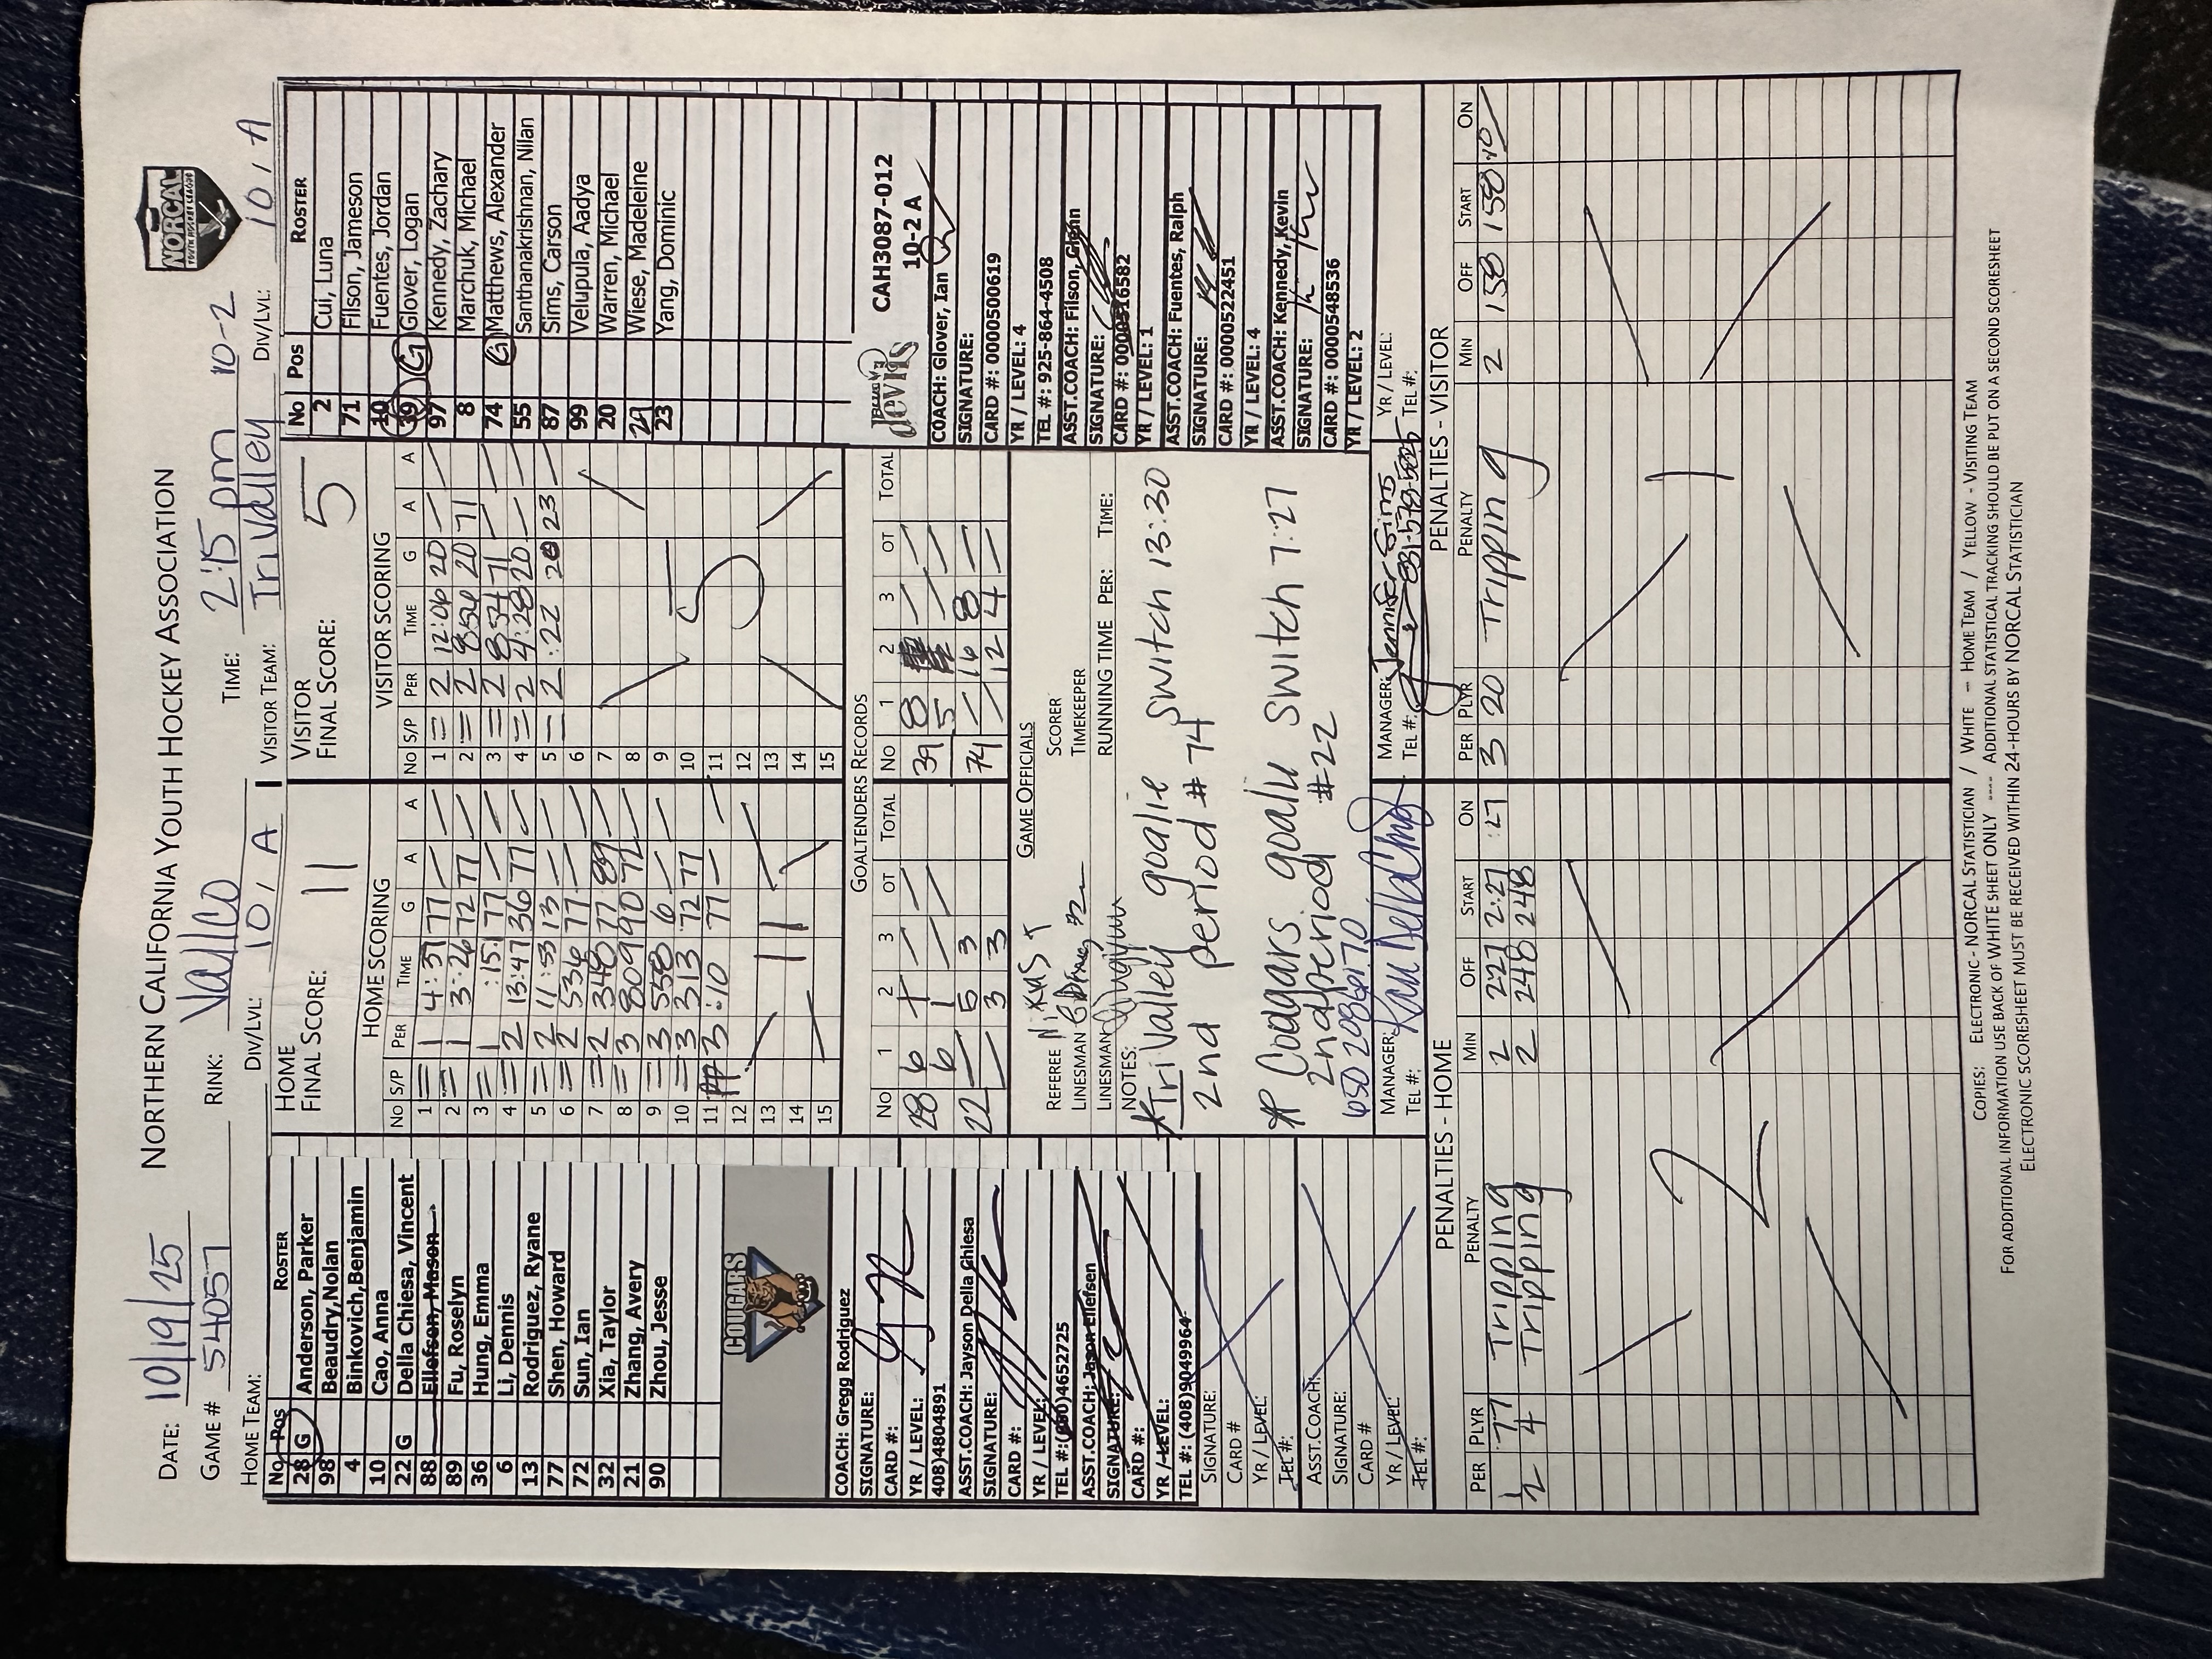 NORTHERN CALIFORNIA YOUTH HOCKEY ASSOCIATION
NORCAL
YOUTH HOCKEY LEAGUE
DATE: 10/19/25
RINK: Vallco
TIME: 2:15 pm 10-2
GAME # 54057
DIV/LVL: 10 / A
VISITOR TEAM: Tri Valley
DIV/LVL: 10 / A
HOME TEAM:
No Pos ROSTER
28 G Anderson, Parker
98 Beaudry, Nolan
4 Binkovich, Benjamin
10 Cao, Anna
22 G Della Chiesa, Vincent
88 Ellefson, Mason
89 Fu, Roselyn
36 Hung, Emma
6 Li, Dennis
13 Rodriguez, Ryane
77 Shen, Howard
72 Sun, Ian
32 Xia, Taylor
21 Zhang, Avery
90 Zhou, Jesse
COUGARS
COACH: Gregg Rodriguez
SIGNATURE:
CARD #:
YR / LEVEL:
408)4804891
ASST.COACH: Jayson Della Chiesa
SIGNATURE:
CARD #:
YR / LEVEL:
TEL #:(650)4652725
ASST.COACH: Jason Ellefsen
SIGNATURE:
CARD #:
YR / LEVEL:
TEL #: (408)9049964
SIGNATURE:
CARD #
YR / LEVEL:
TEL #:
ASST.COACH:
SIGNATURE:
CARD #
YR / LEVEL:
TEL #:
HOME
FINAL SCORE: 11
HOME SCORING
No S/P PER TIME G A A
1 = 1 4:37 77
2 = 1 3:26 72 77
3 = 1 :15.1 77
4 = 2 13:47 36 77
5 = 2 11:53 13
6 = 2 536 77
7 = 2 348 77 89
8 = 3 809 90 72
9 = 3 558 6
10 = 3 313 72 77
11 PP 3 :10 77
12
13
14
15
11
VISITOR
FINAL SCORE: 5
VISITOR SCORING
No S/P PER TIME G A A
1 = 2 12:06 20
2 = 2 856 20 71
3 = 2 834 71
4 = 2 4:28 20
5 - 2 :22 20 23
6
7
8
9
10
11
12
13
14
15
5
No Pos ROSTER
2 Cui, Luna
71 Filson, Jameson
10 Fuentes, Jordan
39 G Glover, Logan
97 Kennedy, Zachary
8 Marchuk, Michael
74 G Matthews, Alexander
55 Santhanakrishnan, Nilan
87 Sims, Carson
99 Velupula, Aadya
20 Warren, Michael
29 Wiese, Madeleine
23 Yang, Dominic
BLUE devils CAH3087-012
10-2 A
COACH: Glover, Ian
SIGNATURE:
CARD #: 0000500619
YR / LEVEL: 4
TEL #: 925-864-4508
ASST.COACH: Filson, Glenn
SIGNATURE:
CARD #: 0000516582
YR / LEVEL: 1
ASST.COACH: Fuentes, Ralph
SIGNATURE:
CARD #: 0000522451
YR / LEVEL: 4
ASST.COACH: Kennedy, Kevin
SIGNATURE:
CARD #: 0000548536
YR / LEVEL: 2
YR / LEVEL:
TEL #:
GOALTENDERS RECORDS
No 1 2 3 OT TOTAL
28 6 1
6 1
22 5 3
3 3
No 1 2 3 OT TOTAL
39 8
5
74 16 8
12 4
GAME OFFICIALS
REFEREE
SCORER
LINESMAN
TIMEKEEPER
LINESMAN
RUNNING TIME PER: TIME:
NOTES:
* Tri Valley goalie switch 13:30
2nd period # 74
* Cougars goalie switch 7:27
2nd period #22
650 2086170
MANAGER:
TEL #:
MANAGER: Jennifer Sims
TEL #: 831-578-5025
PENALTIES - HOME
PER PLYR PENALTY MIN OFF START ON
1 77 Tripping 2 227 2:27 :27
2 4 Tripping 2 248 248
2
PENALTIES - VISITOR
PER PLYR PENALTY MIN OFF START ON
3 20 Tripping 2 158 158 :10
1
COPIES: ELECTRONIC - NORCAL STATISTICIAN / WHITE --- HOME TEAM / YELLOW - VISITING TEAM
FOR ADDITIONAL INFORMATION USE BACK OF WHITE SHEET ONLY ---- ADDITIONAL STATISTICAL TRACKING SHOULD BE PUT ON A SECOND SCORESHEET
ELECTRONIC SCORESHEET MUST BE RECEIVED WITHIN 24-HOURS BY NORCAL STATISTICIAN